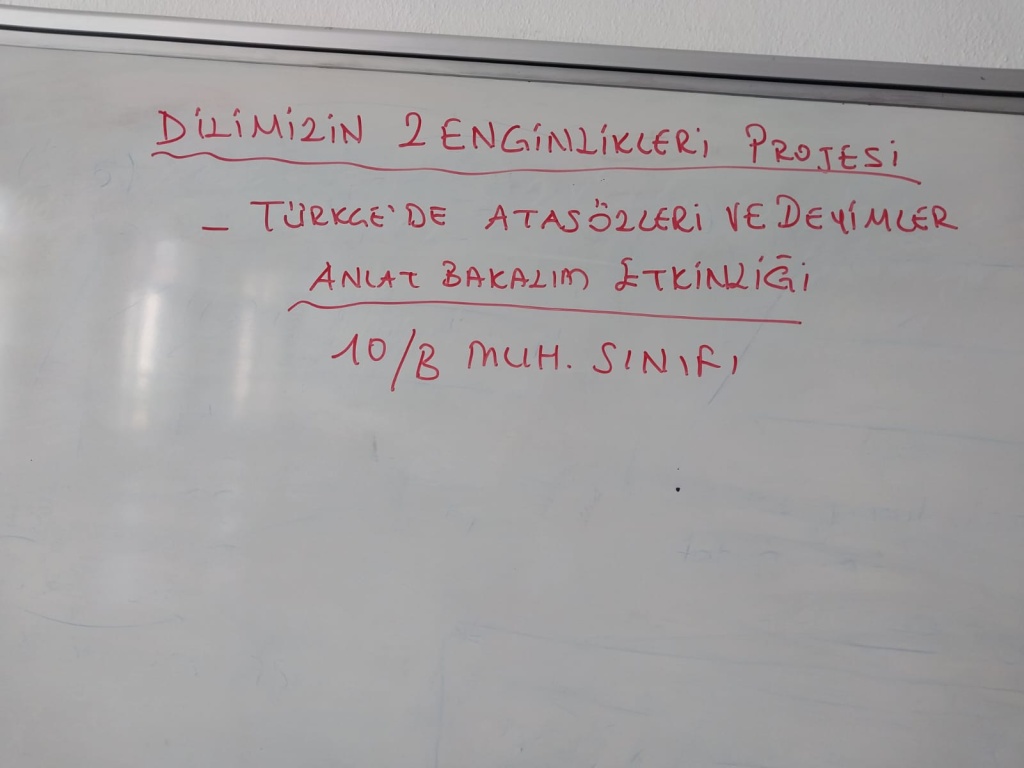 DİLİMİZİN ZENGİNLİKLERİ PROJESİ
– TÜRKÇE'DE ATASÖZLERİ VE DEYİMLER
ANLAT BAKALIM ETKİNLİĞİ
10/B MUH. SINIFI